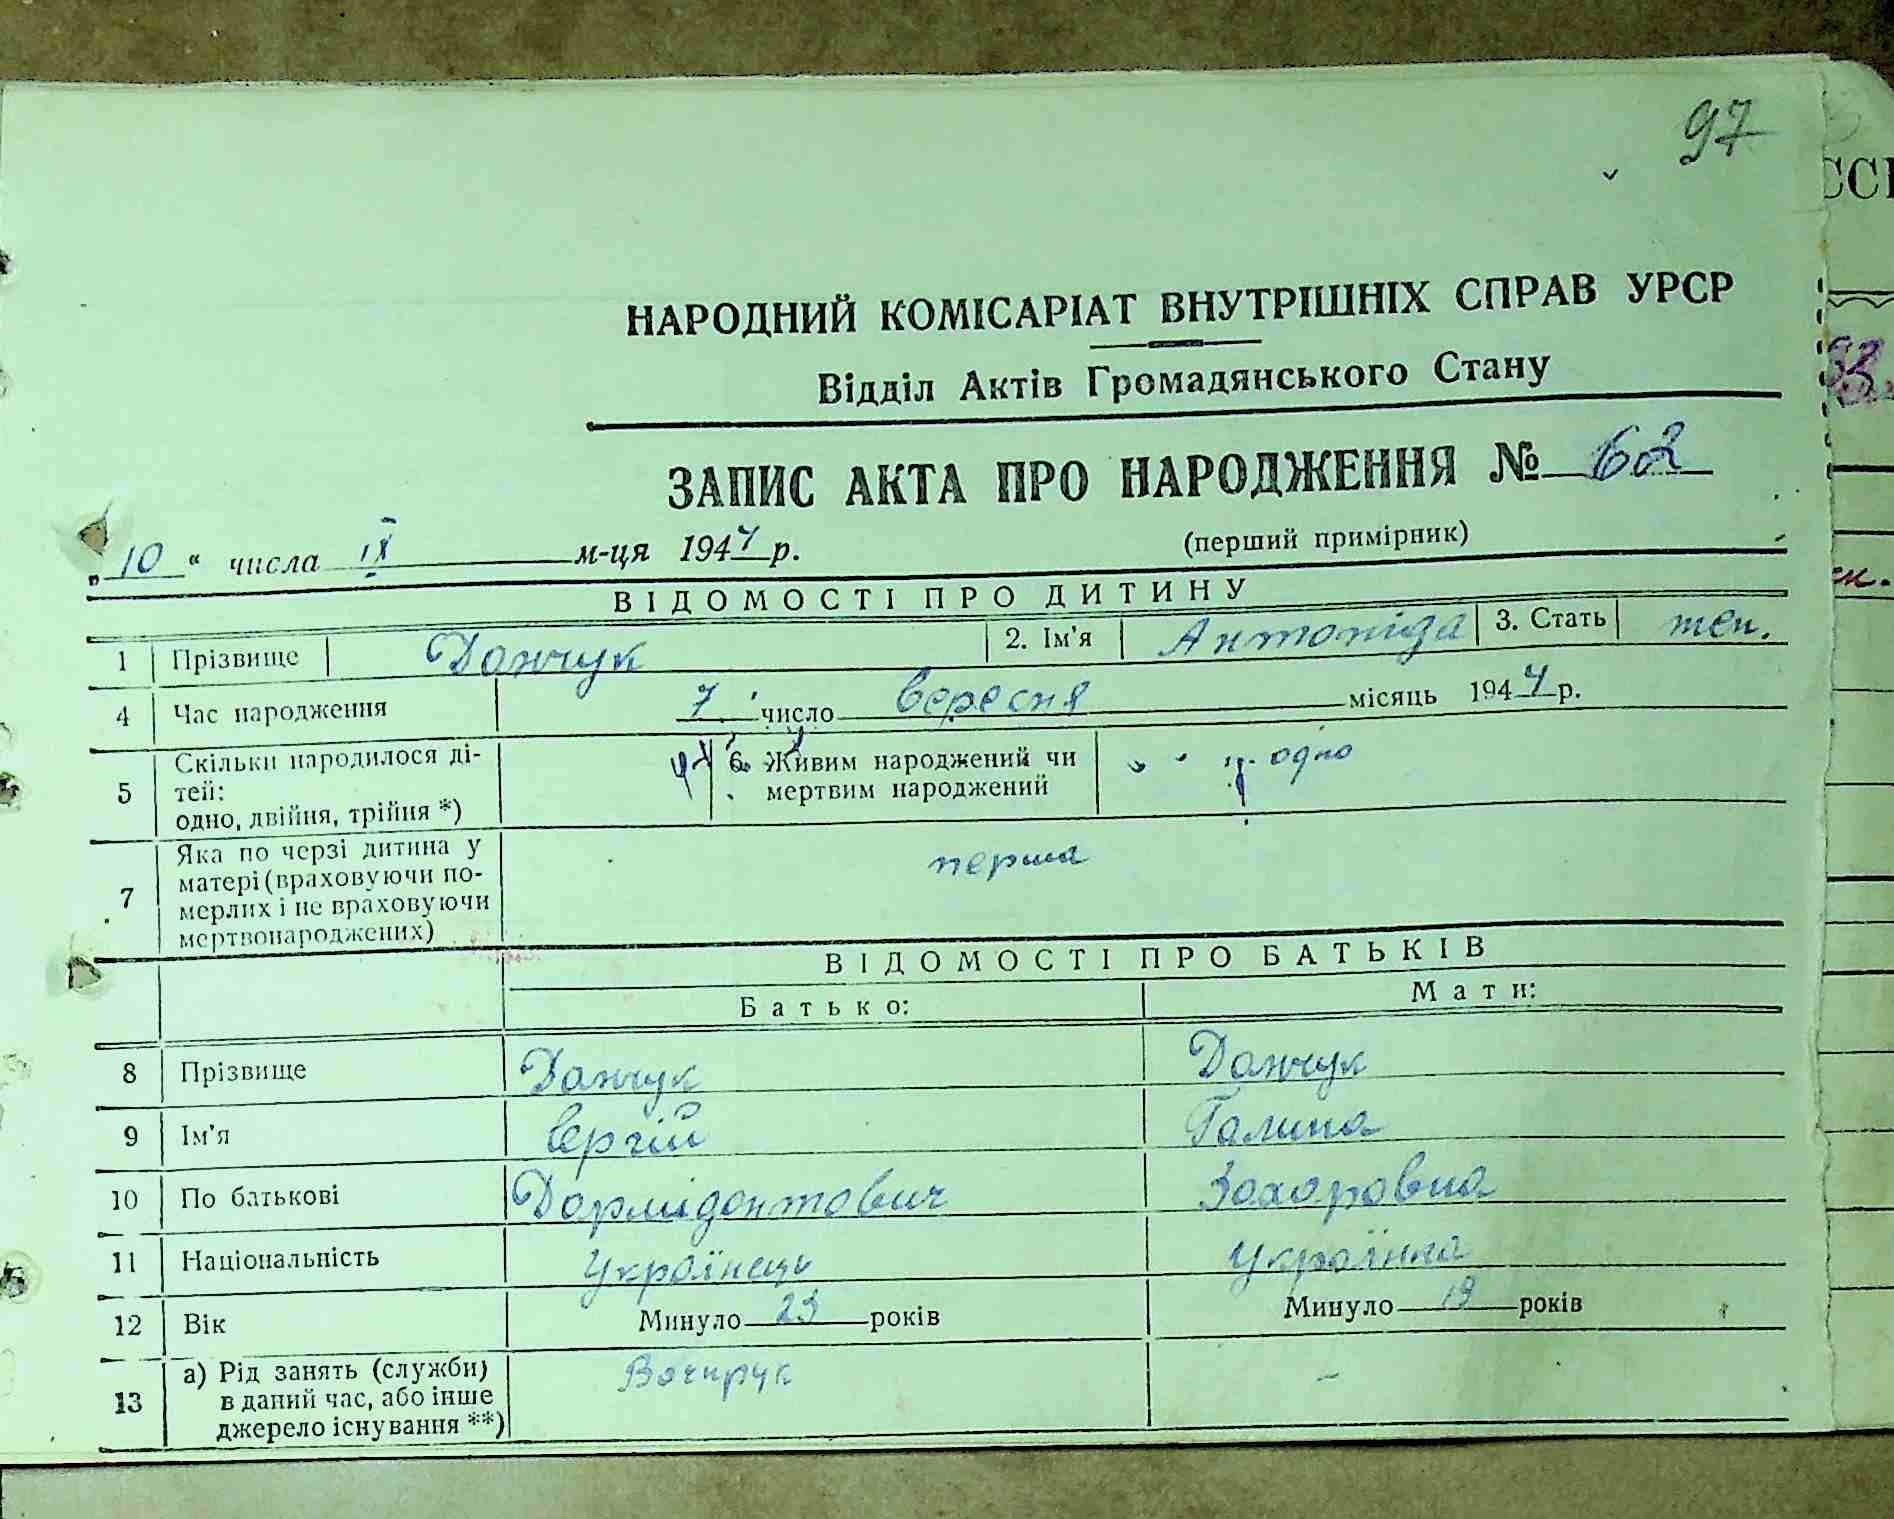 97
НАРОДНИЙ КОМІСАРІАТ ВНУТРІШНІХ СПРАВ УРСР
Відділ Актів Громадянського Стану
ЗАПИС АКТА ПРО НАРОДЖЕННЯ № 62
„10“ числа IX м-ця 1944 р. (перший примірник)
ВІДОМОСТІ ПРО ДИТИНУ
1 Прізвище Данчук 2. Ім'я Антоніда 3. Стать жен.
4 Час народження 7 число вересня місяць 1944 р.
5 Скільки народилося ді-
тей:
одно, двійня, трійня *)
6. Живим народжений чи
мертвим народжений
одно
7 Яка по черзі дитина у
матері (враховуючи по-
мерлих і не враховуючи
мертвонароджених)
перша
ВІДОМОСТІ ПРО БАТЬКІВ
Батько: Мати:
8 Прізвище Данчук Данчук
9 Ім'я Сергій Галина
10 По батькові Дормідонтович Захоровна
11 Національність Українець Українка
12 Вік Минуло 23 років Минуло 19 років
13 а) Рід занять (служби)
в даний час, або інше
джерело існування **)
-